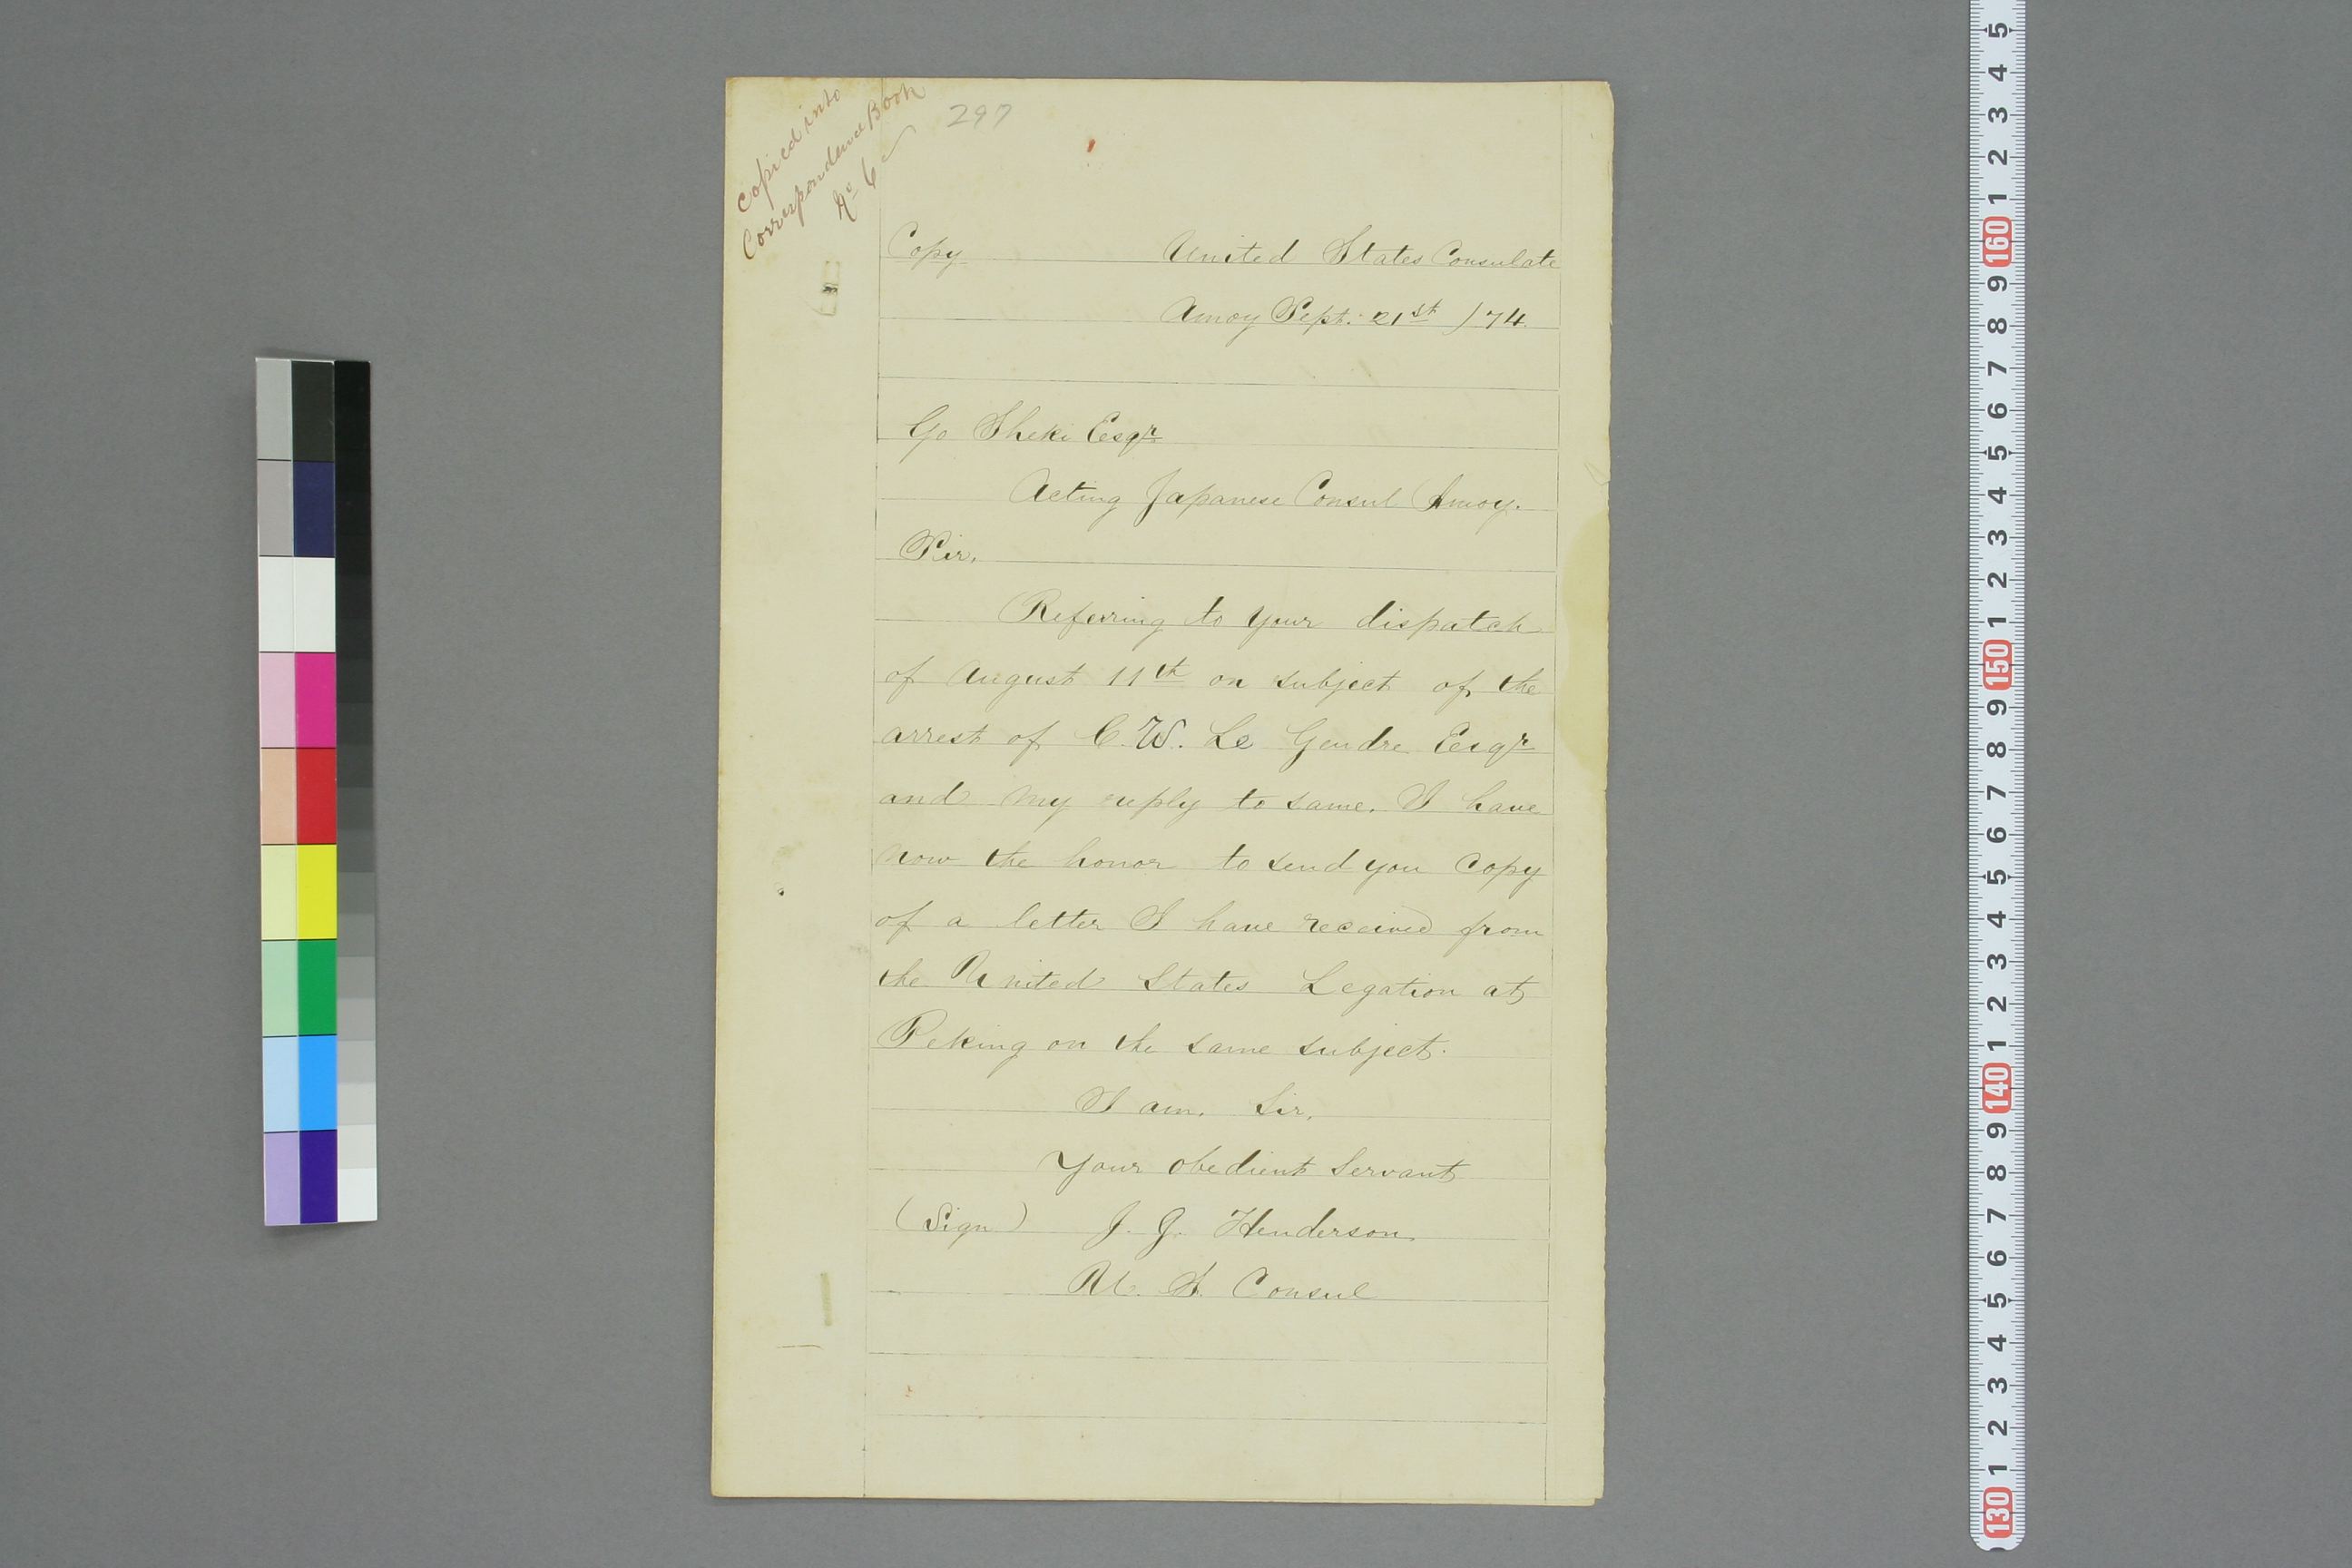 Copied into
Correspondence Book
No 6
297
Copy United States Consulate
Amoy Sept. 21st /74
Go Sheki Esqr
Acting Japanese Consul Amoy.
Sir,
Referring to your dispatch
of August 11th on subject of the
arrest of C. W. Le Gendre Esqr
and my reply to same. I have
now the honor to send you copy
of a letter I have received from
the United States Legation at
Peking on the same subject.
I am, Sir,
Your obedient Servant
(Sign) J. J. Henderson
U. S. Consul
5
4
3
2
1
160
9
8
7
6
5
4
3
2
1
150
9
8
7
6
5
4
3
2
1
140
9
8
7
6
5
4
3
2
1
130